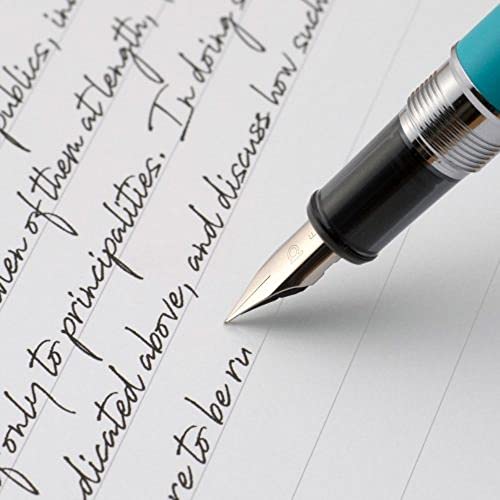 publics, in
men of them at length,
only to principalities. In doing s
dicated above, and discuss how such
re to be ru